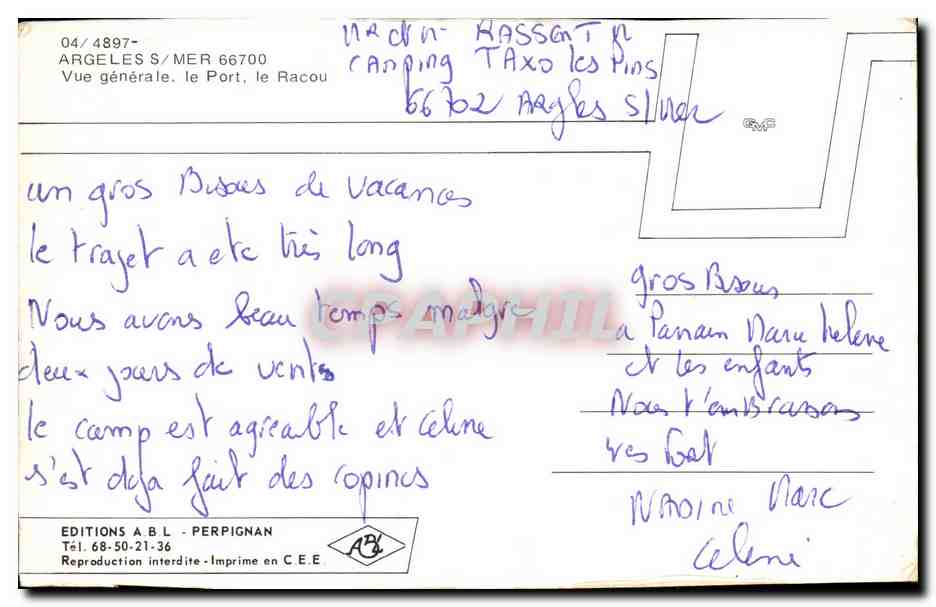 04/4897-
ARGELES S/MER 66700
Vue générale. le Port, le Racou
camping TAXO les Pins
66702 ARgles S/Mer
GMC
un gros Bisous de vacances
le trajet a ete très long
Nous avons beau temps malgre
deux jours de vents
le camp est agreable et celine
s'est deja fait des copines
gros Bisous
a Parrain Marie helene
et les enfants
Nous t'embrassons
tres fort
NADINE Marc
Celine
CPAPHIL
EDITIONS A.B.L - PERPIGNAN
Tél. 68-50-21-36
Reproduction interdite - Imprime en C.E.E.
ABL